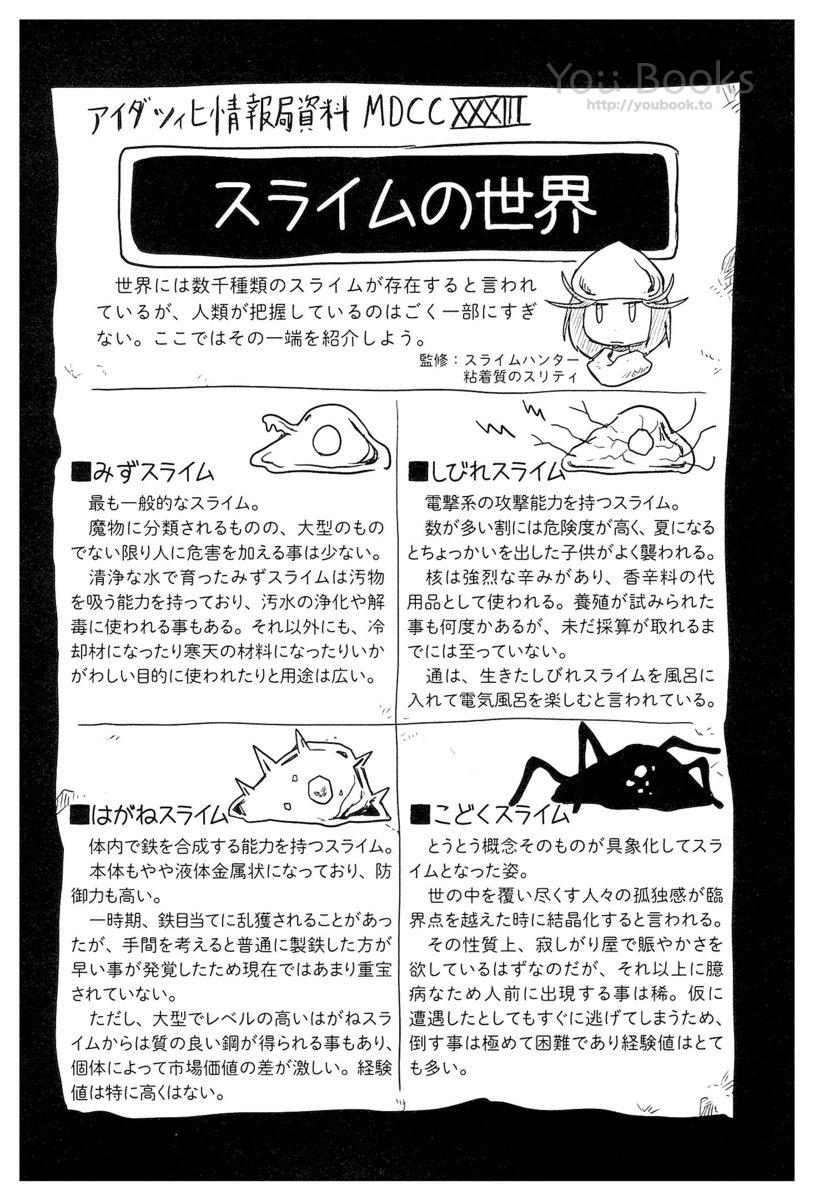 You Books
http://youbook.to
アイダツィヒ情報局資料 MDCCXXXIII
スライムの世界
世界には数千種類のスライムが存在すると言われ
ているが、人類が把握しているのはごく一部にすぎ
ない。ここではその一端を紹介しよう。
監修:スライムハンター
粘着質のスリティ
■みずスライム
最も一般的なスライム。
魔物に分類されるものの、大型のもの
でない限り人に危害を加える事は少ない。
清浄な水で育ったみずスライムは汚物
を吸う能力を持っており、汚水の浄化や解
毒に使われる事もある。それ以外にも、冷
却材になったり寒天の材料になったりいか
がわしい目的に使われたりと用途は広い。
■しびれスライム
電撃系の攻撃能力を持つスライム。
数が多い割には危険度が高く、夏になる
とちょっかいを出した子供がよく襲われる。
核は強烈な辛みがあり、香辛料の代
用品として使われる。養殖が試みられた
事も何度かあるが、未だ採算が取れるま
でには至っていない。
通は、生きたしびれスライムを風呂に
入れて電気風呂を楽しむと言われている。
■はがねスライム
体内で鉄を合成する能力を持つスライム。
本体もやや液体金属状になっており、防
御力も高い。
一時期、鉄目当てに乱獲されることがあっ
たが、手間を考えると普通に製鉄した方が
早い事が発覚したため現在ではあまり重宝
されていない。
ただし、大型でレベルの高いはがねスラ
イムからは質の良い鋼が得られる事もあり、
個体によって市場価値の差が激しい。経験
値は特に高くはない。
■こどくスライム
とうとう概念そのものが具象化してスラ
イムとなった姿。
世の中を覆い尽くす人々の孤独感が臨
界点を越えた時に結晶化すると言われる。
その性質上、寂しがり屋で賑やかさを
欲しているはずなのだが、それ以上に臆
病なため人前に出現する事は稀。仮に
遭遇したとしてもすぐに逃げてしまうため、
倒す事は極めて困難であり経験値はとて
も多い。